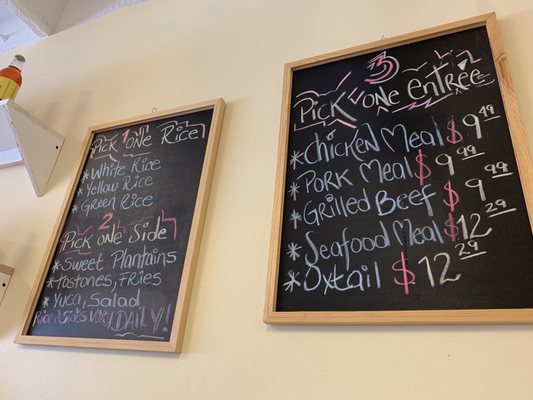 1
Pick One Rice
* White Rice
* Yellow Rice
* Green Rice
2
Pick One Side
* Sweet Plantains
* Tostones, Fries
* Yuca, Salad
Rice & Sides VARY DAILY!
3
Pick One Entrée
* Chicken Meal $9.49
* Pork Meal $9.49
* Grilled Beef $9.99
* Seafood Meal $12.29
* Oxtail $12.29